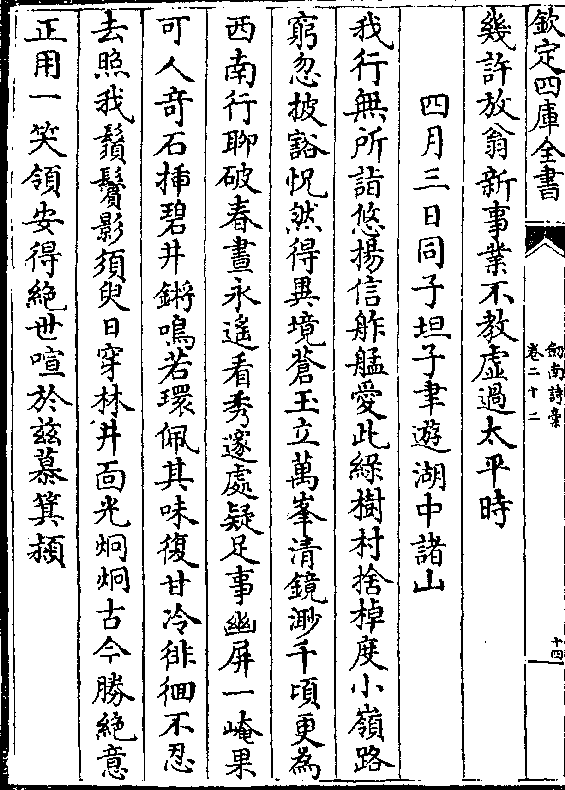 欽定四庫全書
劒南詩稾
卷二十二
十四
幾許放翁新事業不教虛過太平時
四月三日同子坦子聿遊湖中諸山
我行無所詣悠揚信舴艋愛此綠樹村捨棹度小嶺路
窮忽披豁怳然得異境蒼玉立萬峯清鏡渺千頃更為
西南行聊破春晝永遙看秀邃處疑足事幽屏一崦果
可人奇石揷碧井鏘鳴若環佩其味復甘冷徘徊不忍
去照我鬚鬢影須臾日穿林井面光炯炯古今勝絶意
正用一笑領安得絶世喧於兹慕箕潁